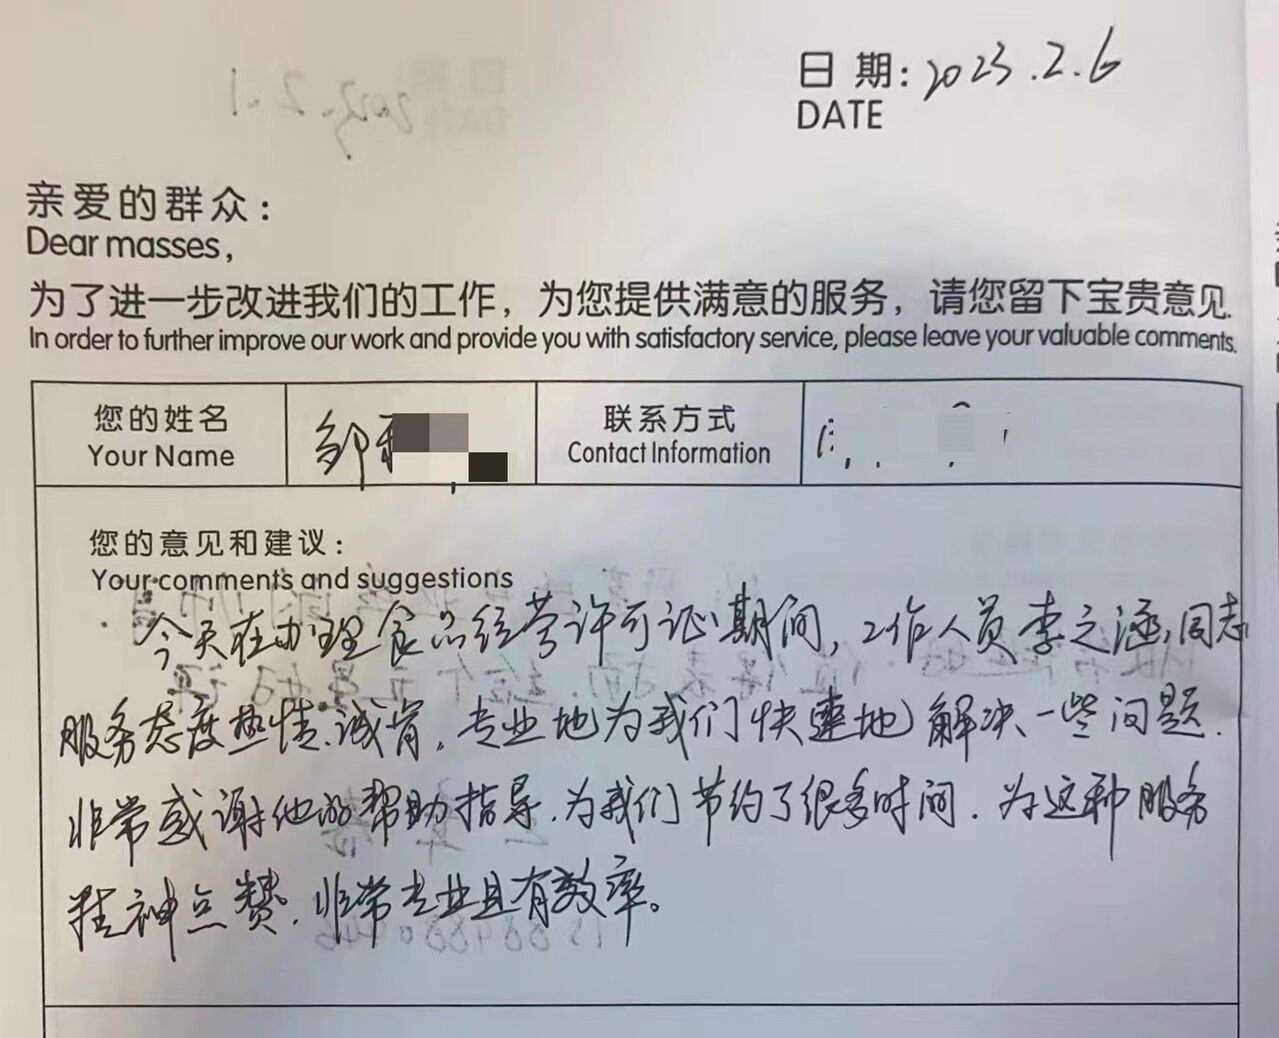 日 期: 2023.2.6
DATE
亲爱的群众:
Dear masses,
为了进一步改进我们的工作，为您提供满意的服务，请您留下宝贵意见.
In order to further improve our work and provide you with satisfactory service, please leave your valuable comments.
您的姓名 邹 联系方式
Your Name Contact Information
您的意见和建议:
Your comments and suggestions
今天在办理食品经营许可证期间，工作人员李之涵同志
服务态度热情、诚肯，专业地为我们快速地解决一些问题.
非常感谢他的帮助指导.为我们节约了很多时间.为这种服务
精神点赞.非常专业且有效率。